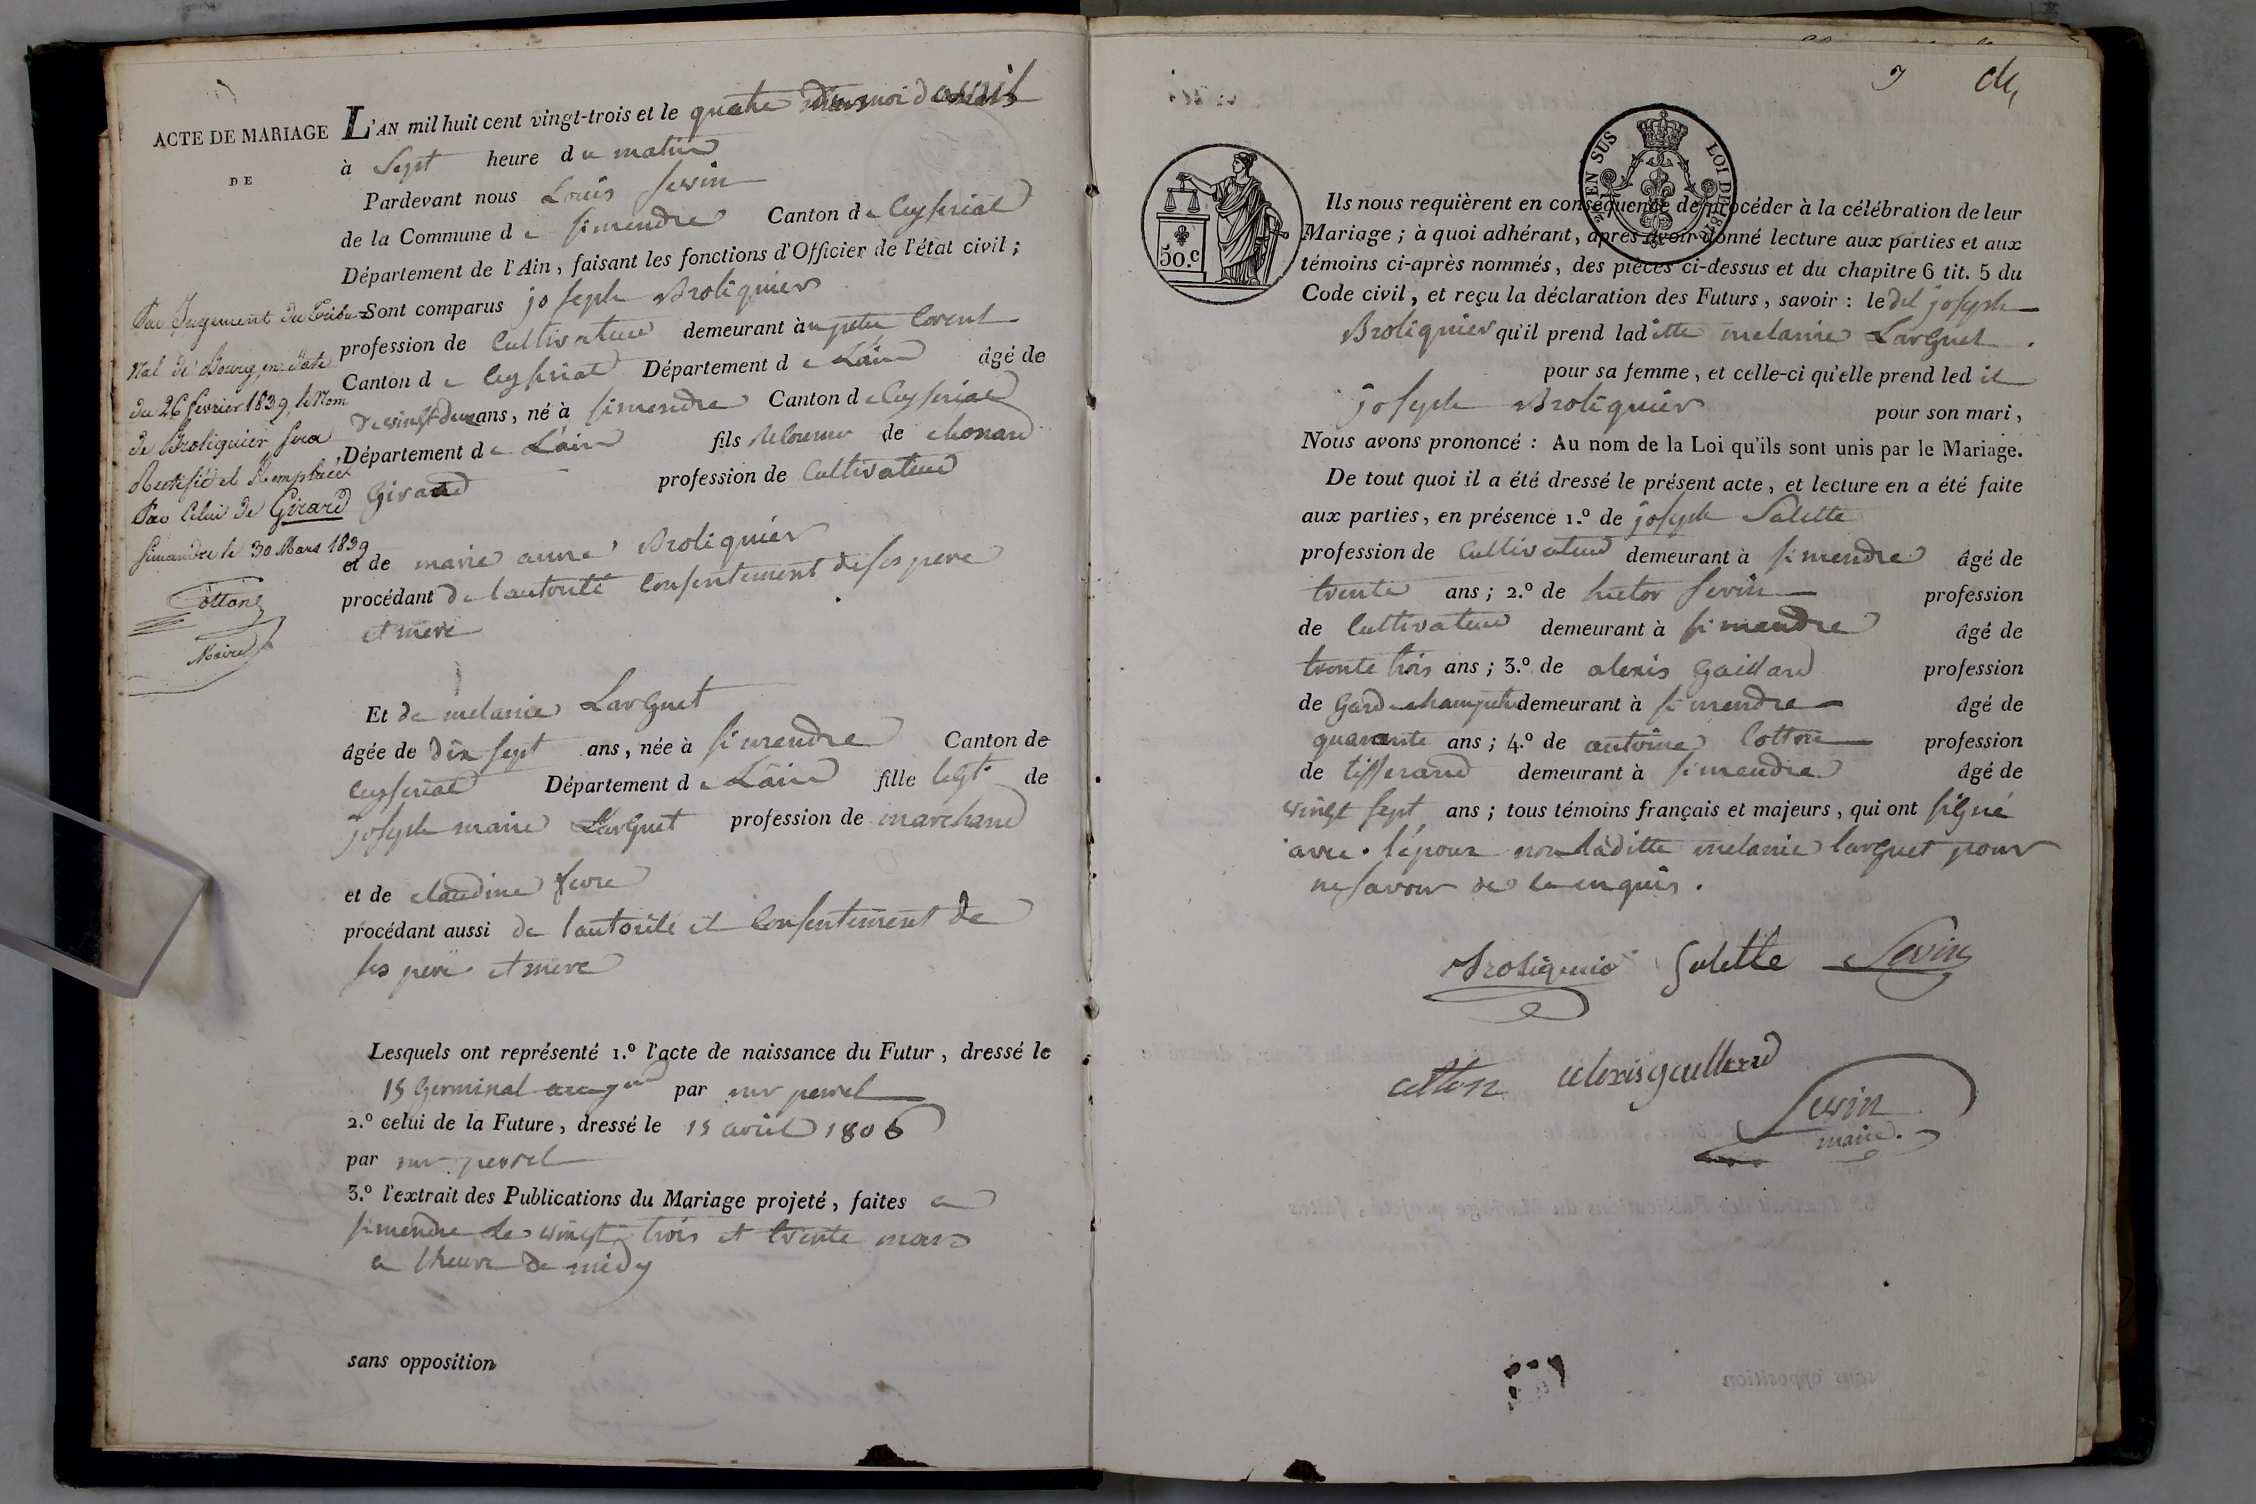 ACTE DE MARIAGE
DE
L'AN mil huit cent vingt-trois et le quatre du moi d avril
à Sept heure du matin
Pardevant nous Louis Sevin
de la Commune de simendre Canton de Ceyseriat
Département de l'Ain, faisant les fonctions d'Officier de l'état civil;
Sont comparus joseph Broliquier
profession de Cultivateur demeurant à petit Corent
Canton de Ceyseriat Département de Lain âgé de
De vingt deux ans, né à simendre Canton de Ceyseriat
Département de Lain fils de
Girard profession de Cultivateur
et de marie anne Broliquier
procédant de lautorité Consentement de ses pere
et mere
Et de melanie Larguet
âgée de dix sept ans, née à simendre Canton de
Ceyseriat Département de Lain fille legt. de
joseph marie Larguet profession de marchand
et de claudine fevre
procédant aussi de lautorité et Consentement de
ses pere et mere
Lesquels ont représenté 1.º l'acte de naissance du Futur, dressé le
15 Germinal par mr perret
2.º celui de la Future, dressé le 15 avril 1806
par mr perret
3.º l'extrait des Publications du Mariage projeté, faites a
simendre le vingt trois et trente mars
a lheure de midy
sans opposition
Par Jugement du Tribu-
nal de Bourg, en date
du 26 février 1839, le Nom
de Broliquier sera
Rectifié et Remplacé
Par Celui de Girard
Simandre le 30 Mars 1839
Cotton
Maire
50.c
EN SUS
LOI DE 1816
Ils nous requièrent en conséquence de procéder à la célébration de leur
Mariage; à quoi adhérant, après avoir donné lecture aux parties et aux
témoins ci-après nommés, des pièces ci-dessus et du chapitre 6 tit. 5 du
Code civil, et reçu la déclaration des Futurs, savoir: le dit joseph
Broliquier qu'il prend laditte melanie Larguet
pour sa femme, et celle-ci qu'elle prend ledit
joseph Broliquier pour son mari,
Nous avons prononcé: Au nom de la Loi qu'ils sont unis par le Mariage.
De tout quoi il a été dressé le présent acte, et lecture en a été faite
aux parties, en présence 1.º de joseph Salette
profession de Cultivateur demeurant à simendre âgé de
trente ans; 2.º de hector Sevin profession
de Cultivateur demeurant à simendre âgé de
trente trois ans; 3.º de alexis Gaillard profession
de Garde champetre demeurant à simendre âgé de
quarante ans; 4.º de antoine Cotton profession
de tisserand demeurant à simendre âgé de
vingt sept ans; tous témoins français et majeurs, qui ont signé
avec lépoux non laditte melanie larguet pour
ne savoir de ce enquis.
Broliquier Salette Sevin
cotton alexis gaillard
Sevin
maire.